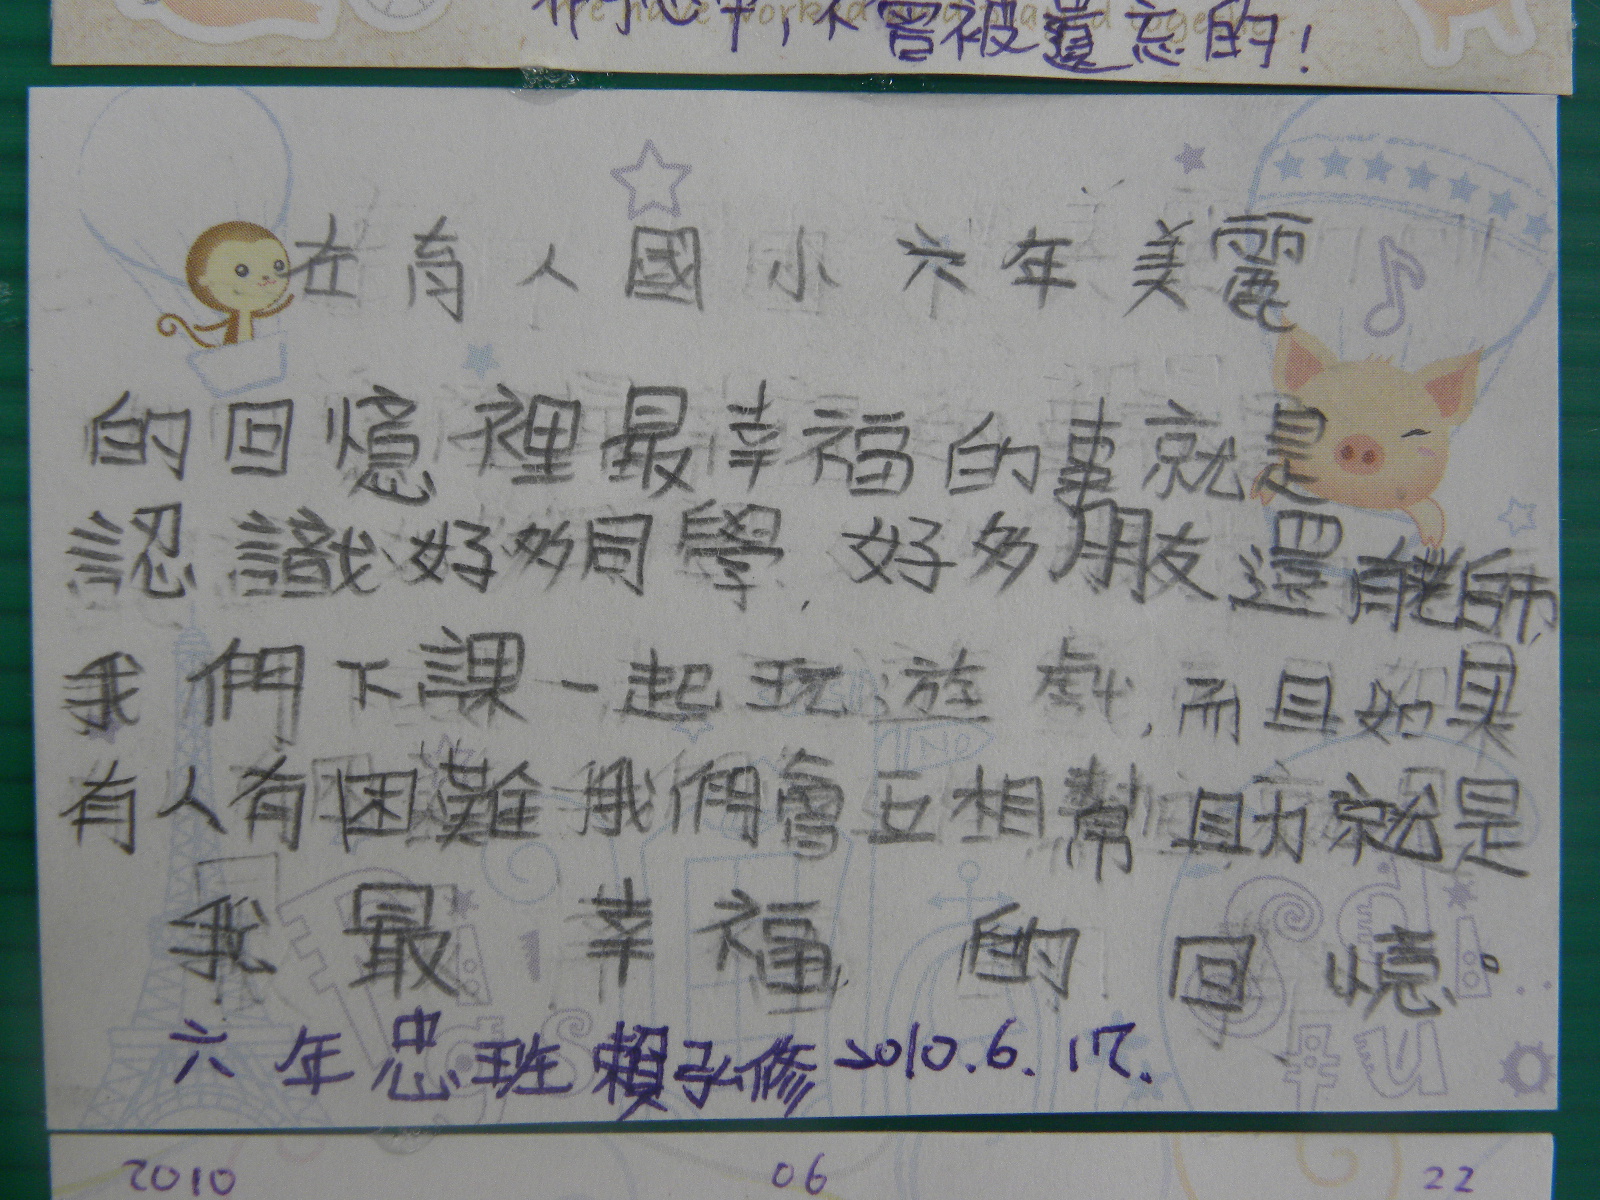 在我心中,不曾被遺忘的!
在育人國小六年美麗
的回憶裡最幸福的事就是
認識好多同學,好多朋友還有老師,
我們下課一起玩遊戲,而且如果
有人有困難我們會互相幫助就是
我最幸福的回憶。
六年忠班賴子修2010.6.17.
2010 06 22